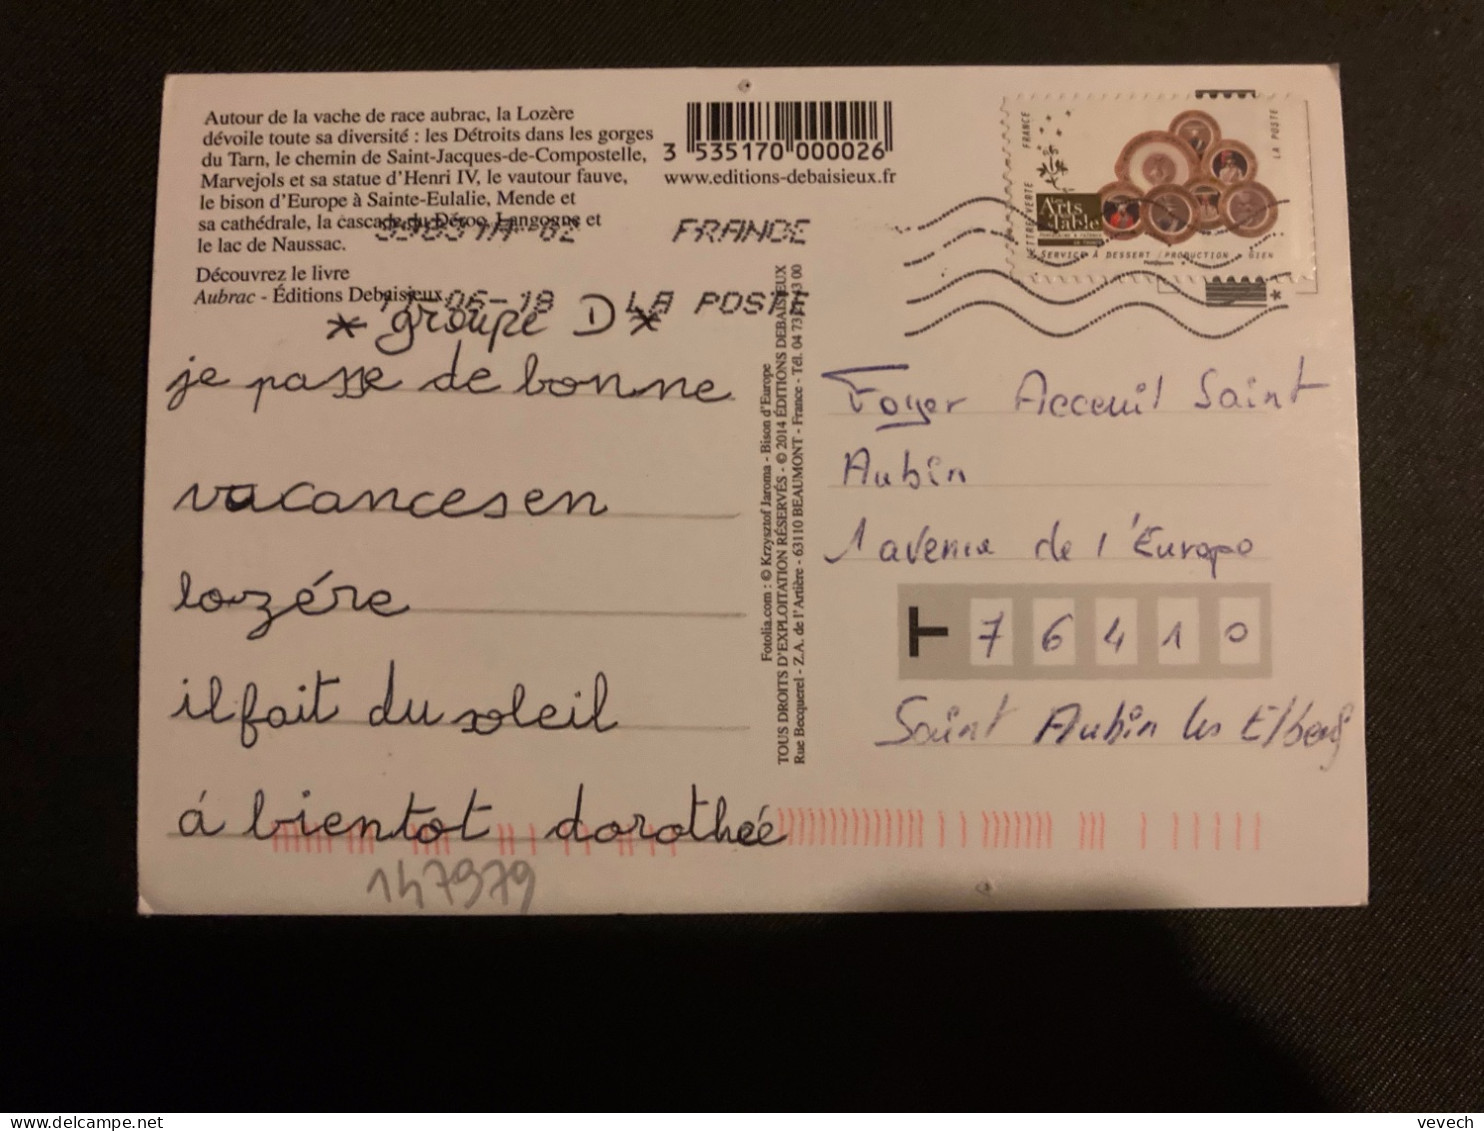 Autour de la vache de race aubrac, la Lozère
dévoile toute sa diversité : les Détroits dans les gorges
du Tarn, le chemin de Saint-Jacques-de-Compostelle,
Marvejols et sa statue d'Henri IV, le vautour fauve,
le bison d'Europe à Sainte-Eulalie, Mende et
sa cathédrale, la cascade du Déroc, Langogne et
le lac de Naussac.
Découvrez le livre
Aubrac - Éditions Debaisieux.
3 535170 000026
www.editions-debaisieux.fr
FRANCE
06-18 LA POSTE
FRANCE
LA POSTE
LETTRE VERTE
Arts de la table
SERVICE À DESSERT / PRODUCTION - GIEN
* groupe D *
je passe de bonne
vacances en
lozére
il fait du soleil
á bientot dorothée
147979
Fotolia.com : © Krzysztof Jaroma - Bison d'Europe
TOUS DROITS D'EXPLOITATION RÉSERVÉS - © 2014 ÉDITIONS DEBAISIEUX
Rue Becquerel - Z.A. de l'Artière - 63110 BEAUMONT - France - Tél. 04 73 43 00
Foyer Acceuil Saint
Aubin
1 avenue de l'Europe
T 76410
Saint Aubin les Elbeuf
vevech